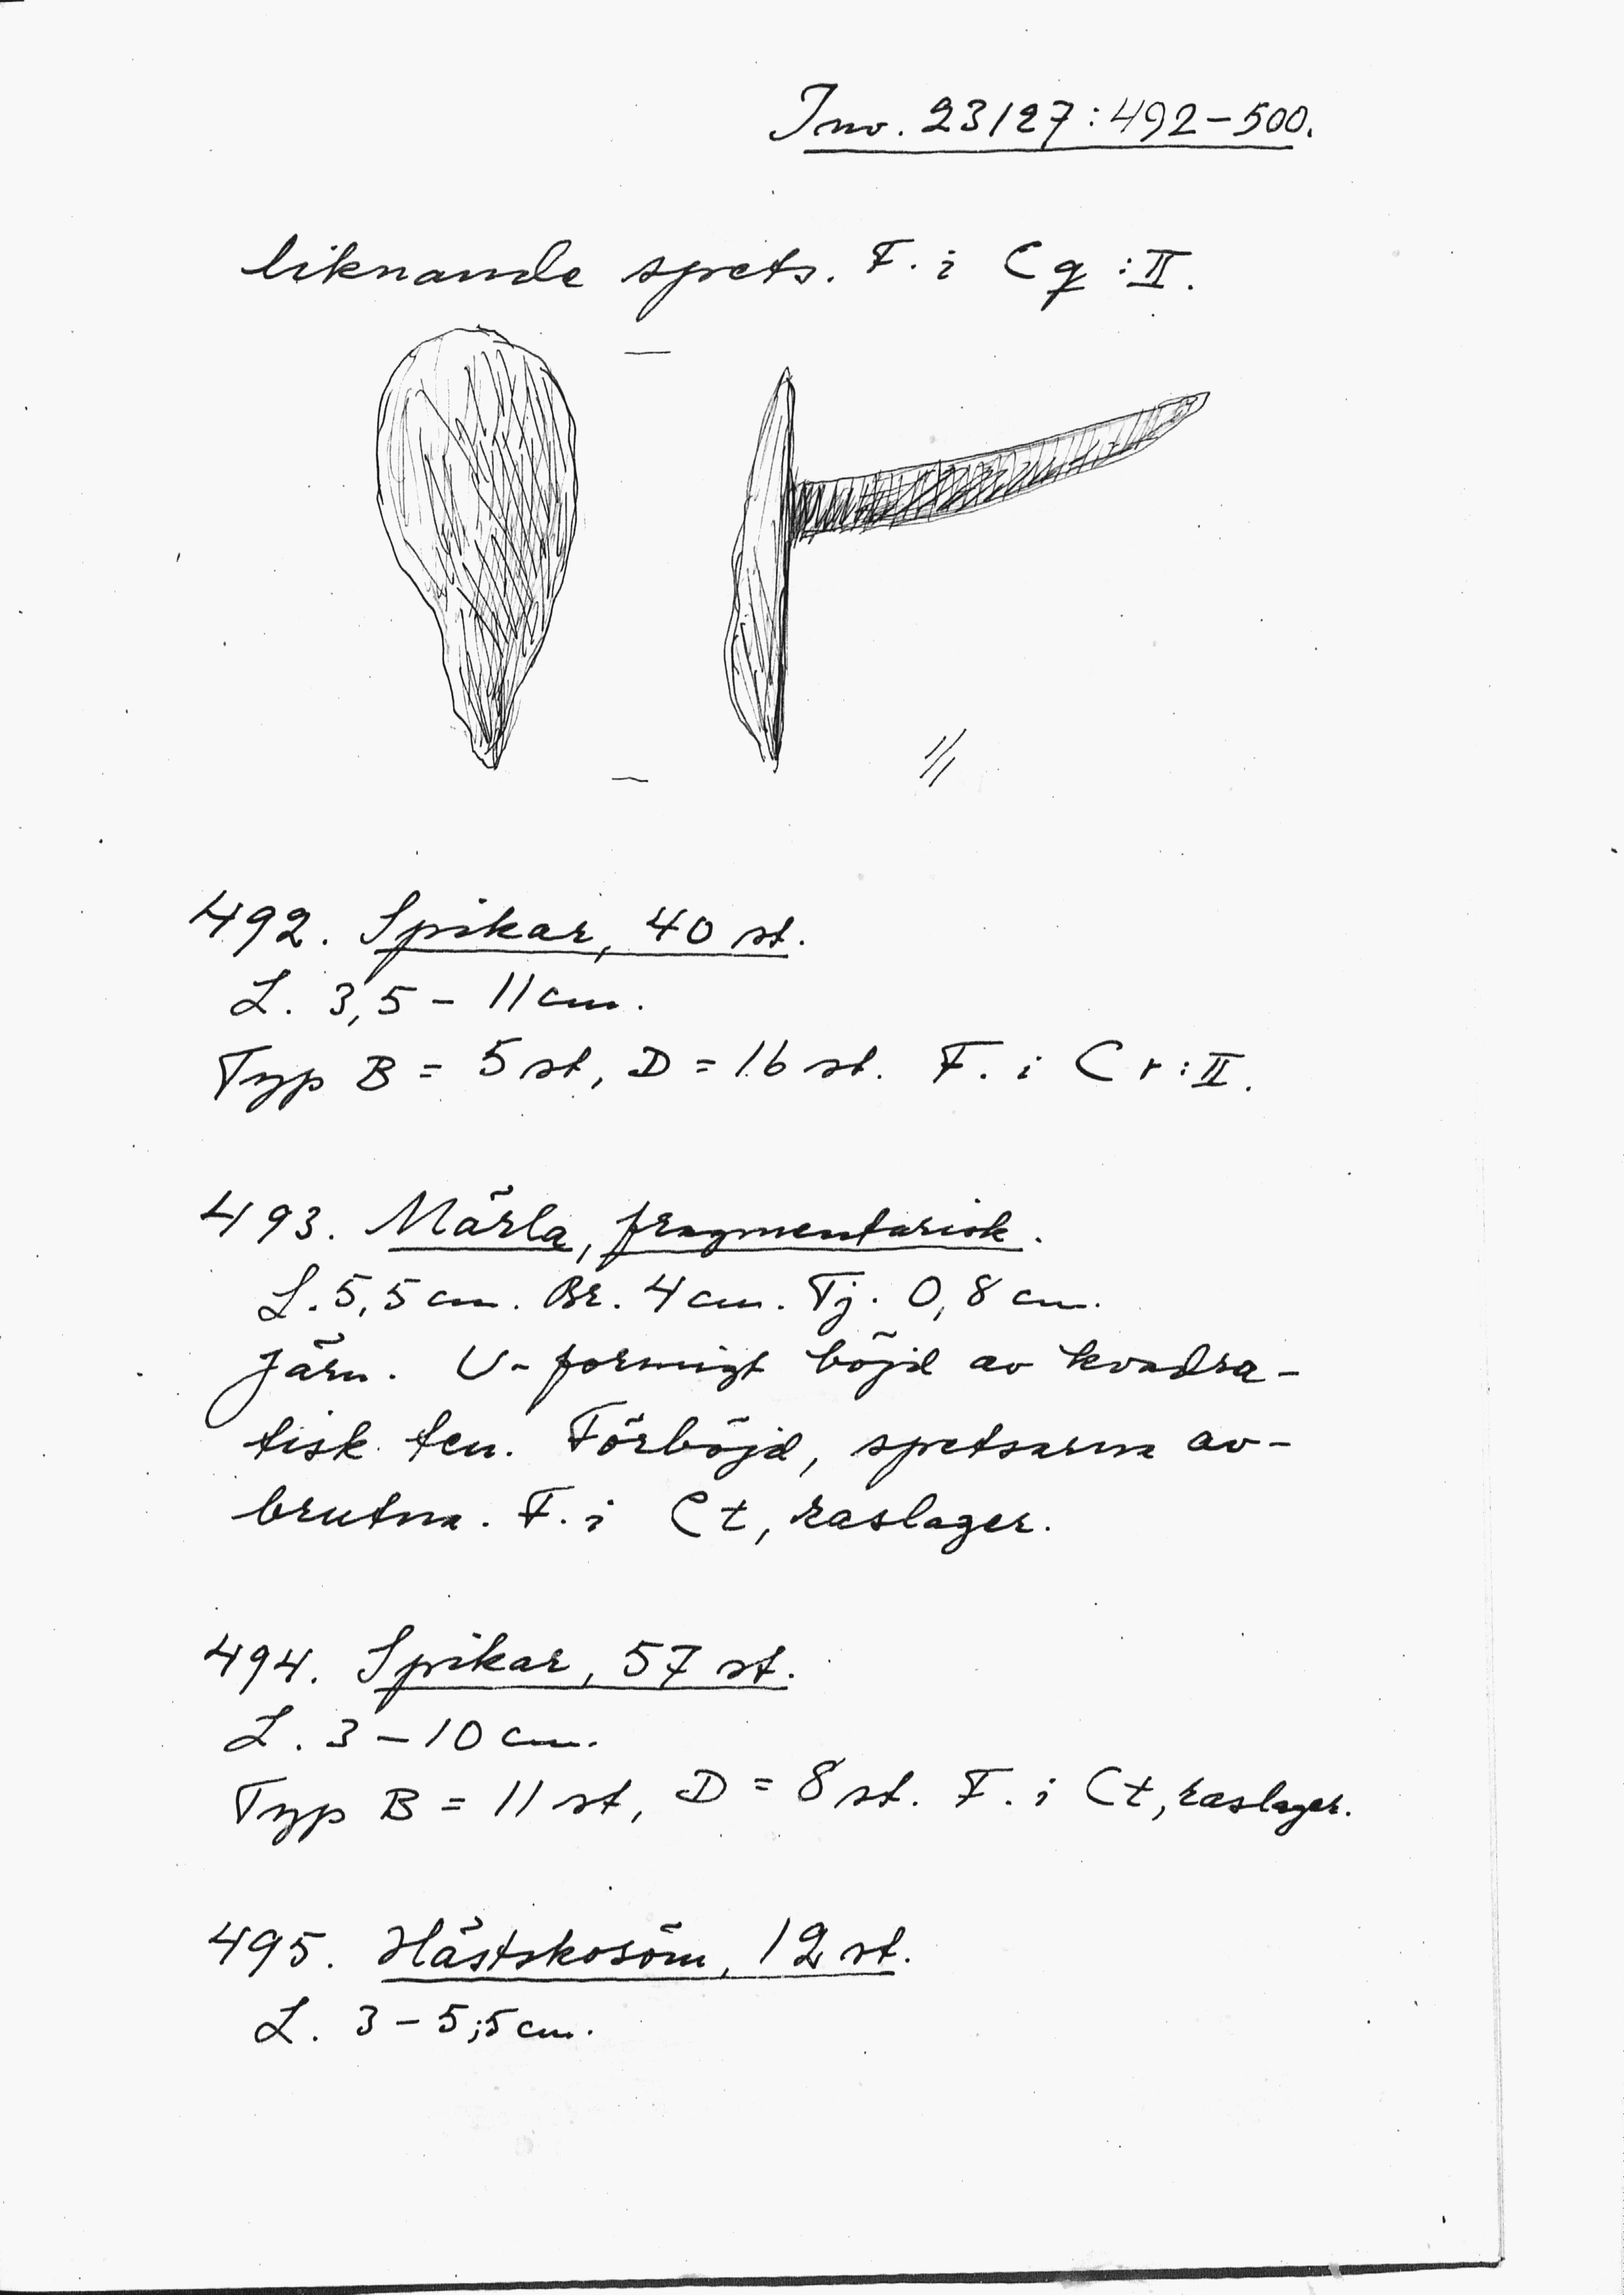 Inv. 23127:492-500.
liknande spets. F. i Cq:II.
492. Spikar, 40 st.
L. 3,5 - 11 cm.
Typ B = 5 st, D = 16 st. F. i Cr:II.
493. Märla, fragmentarisk.
L. 5,5 cm. Br. 4 cm. Tj. 0,8 cm.
Järn. U-formigt böjd av kvadra-
tisk ten. Förböjd, spetsarna av-
brutna. F. i Ct, raslager.
494. Spikar, 57 st.
L. 3 - 10 cm.
Typ B = 11 st, D = 8 st. F. i Ct, raslager.
495. Hästskosöm, 12 st.
L. 3 - 5,5 cm.